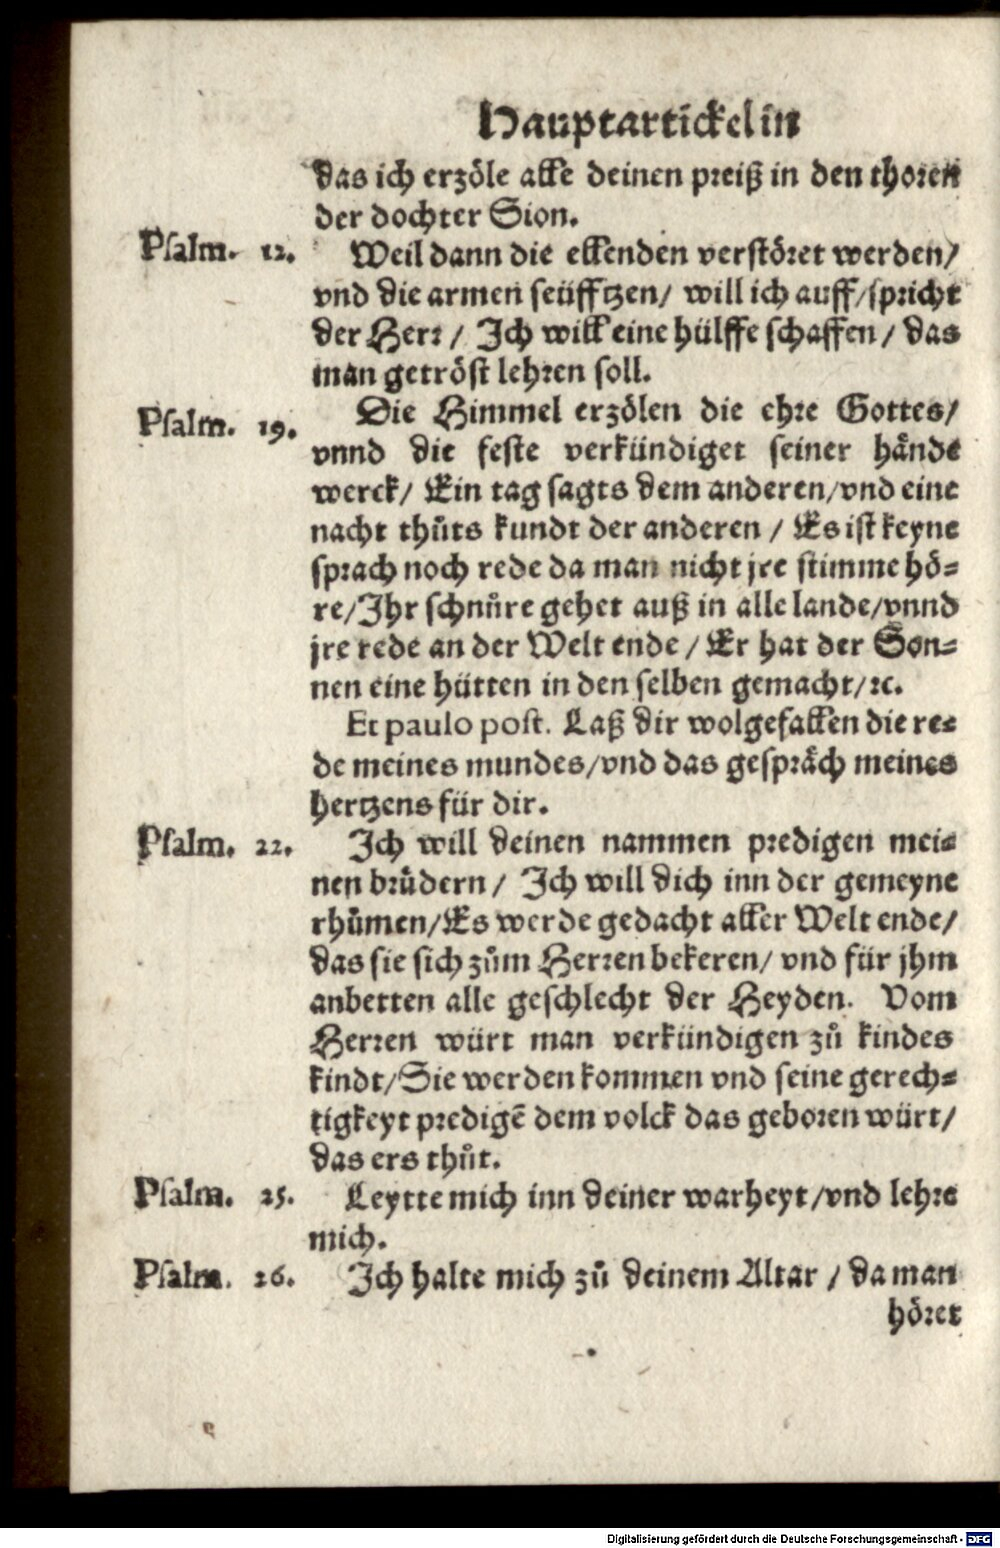 Hauptartickel in
das ich erzöle alle deinen preiß in den thoren
der dochter Sion.
Psalm. 12. Weil dann die ellenden verstöret werden/
vnd die armen seüfftzen/ will ich auff/spricht
der Herr / Ich will eine hülffe schaffen / das
man getröst lehren soll.
Psalm. 19. Die Himmel erzölen die ehre Gottes/
vnnd die feste verkündiget seiner hände
werck/ Ein tag sagts dem anderen/vnd eine
nacht thůts kundt der anderen / Es ist keyne
sprach noch rede da man nicht jre stimme hö-
re/Ihr schnůre gehet auß in alle lande/vnnd
jre rede an der Welt ende / Er hat der Son-
nen eine hütten in den selben gemacht/ꝛc.
Et paulo post. Laß dir wolgefallen die re-
de meines mundes/vnd das gespräch meines
hertzens für dir.
Psalm. 22. Ich will deinen nammen predigen mei-
nen brůdern / Ich will dich inn der gemeyne
rhůmen/Es werde gedacht aller Welt ende/
das sie sich zům Herren bekeren/ vnd für jhm
anbetten alle geschlecht der Heyden. Vom
Herren würt man verkündigen zů kindes
kindt/Sie werden kommen vnd seine gerech-
tigkeyt predigē dem volck das geboren würt/
das ers thůt.
Psalm. 25. Leytte mich inn deiner warheyt/vnd lehre
mich.
Psalm. 26. Ich halte mich zů deinem Altar / da man
höret
Digitalisierung gefördert durch die Deutsche Forschungsgemeinschaft - DFG